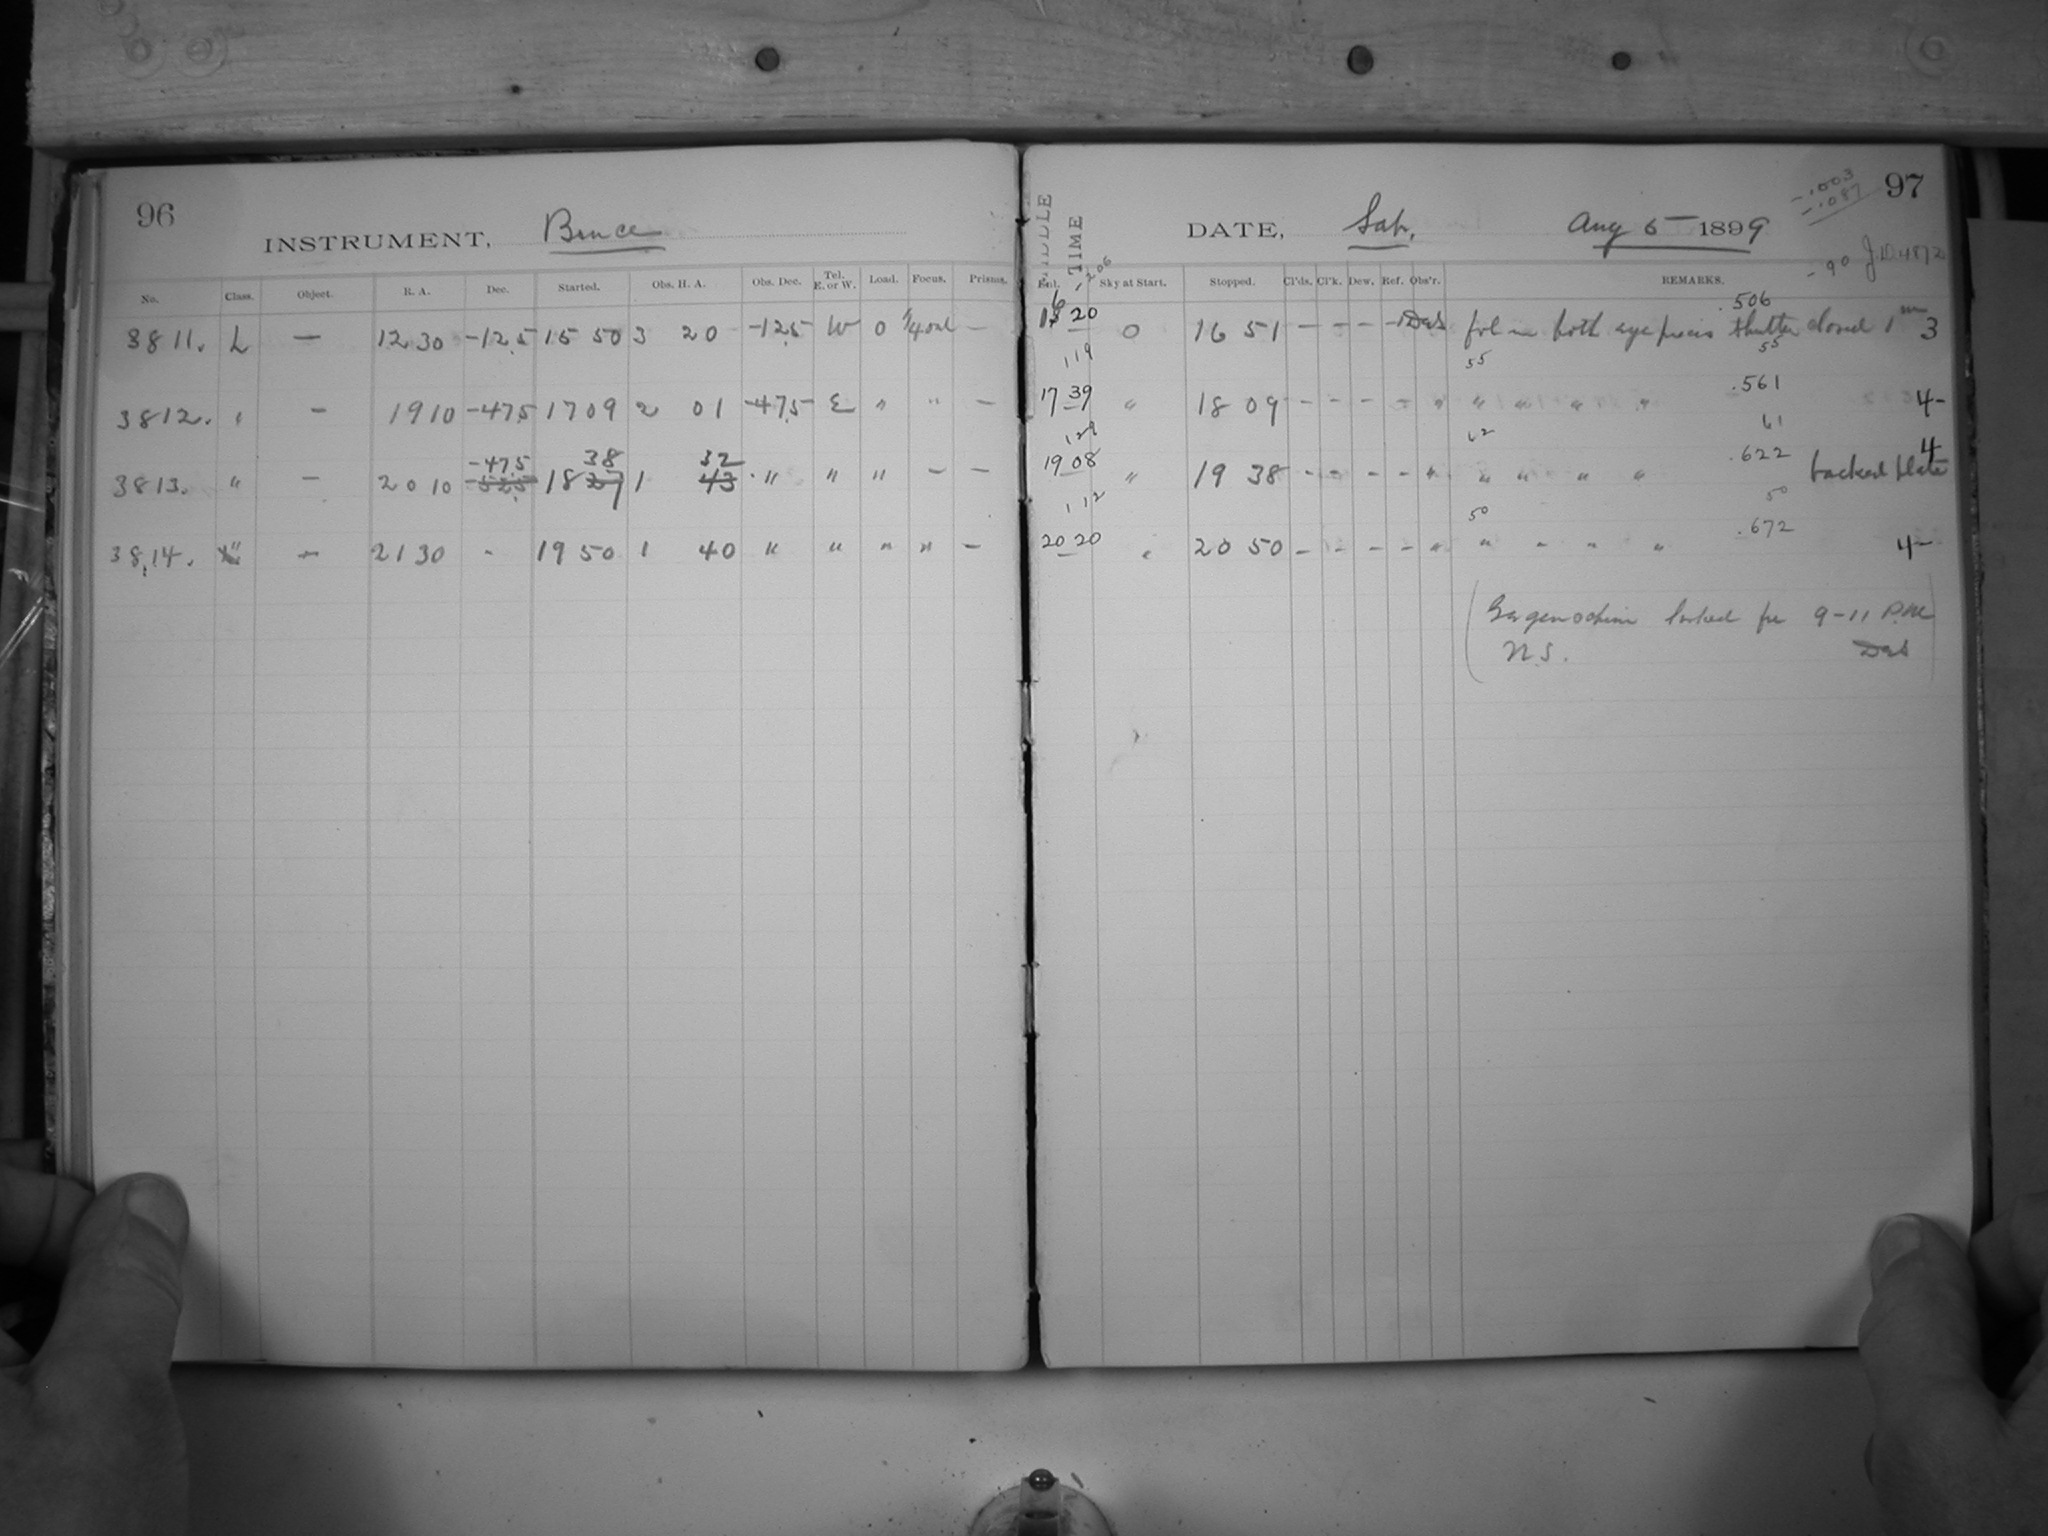 96
INSTRUMENT, Bruce
No. Class. Object. R. A. Dec. Started. Obs. H. A. Obs. Dec. Tel. E. or W. Load. Focus. Prisms.
3811. L — 12 30 -12.5 15 50 3 20 -12.5 W 0 —
3812. " — 19 10 -47.5 17 09 2 01 -47.5 E " " —
-47.5 38 32
3813. " — 20 10 -52.5 18 27 1 43 " " " — —
3814. " — 21 30 - 19 50 1 40 " " " " —
97
MIDDLE TIME
DATE, Sat. Aug 5 1899
-.003
-.087
-90 J.D. 4872
Ent. Sky at Start. Stopped. Cl'ds. Cl'k. Dew. Ref. Obs'r. REMARKS.
.506
16 20 0 16 51 — — — — fol in both eye pieces shutter closed 1m 3
119 55 55
.561
17 39 " 18 09 - - - - " " " " " 4-
129 62 61
.622 4
19 08 " 19 38 - - - - " " " " " backed plate
112 50 50
.672
20 20 " 20 50 - - - - " " " " " 4-
looked for 9-11 P.M.
N.S.